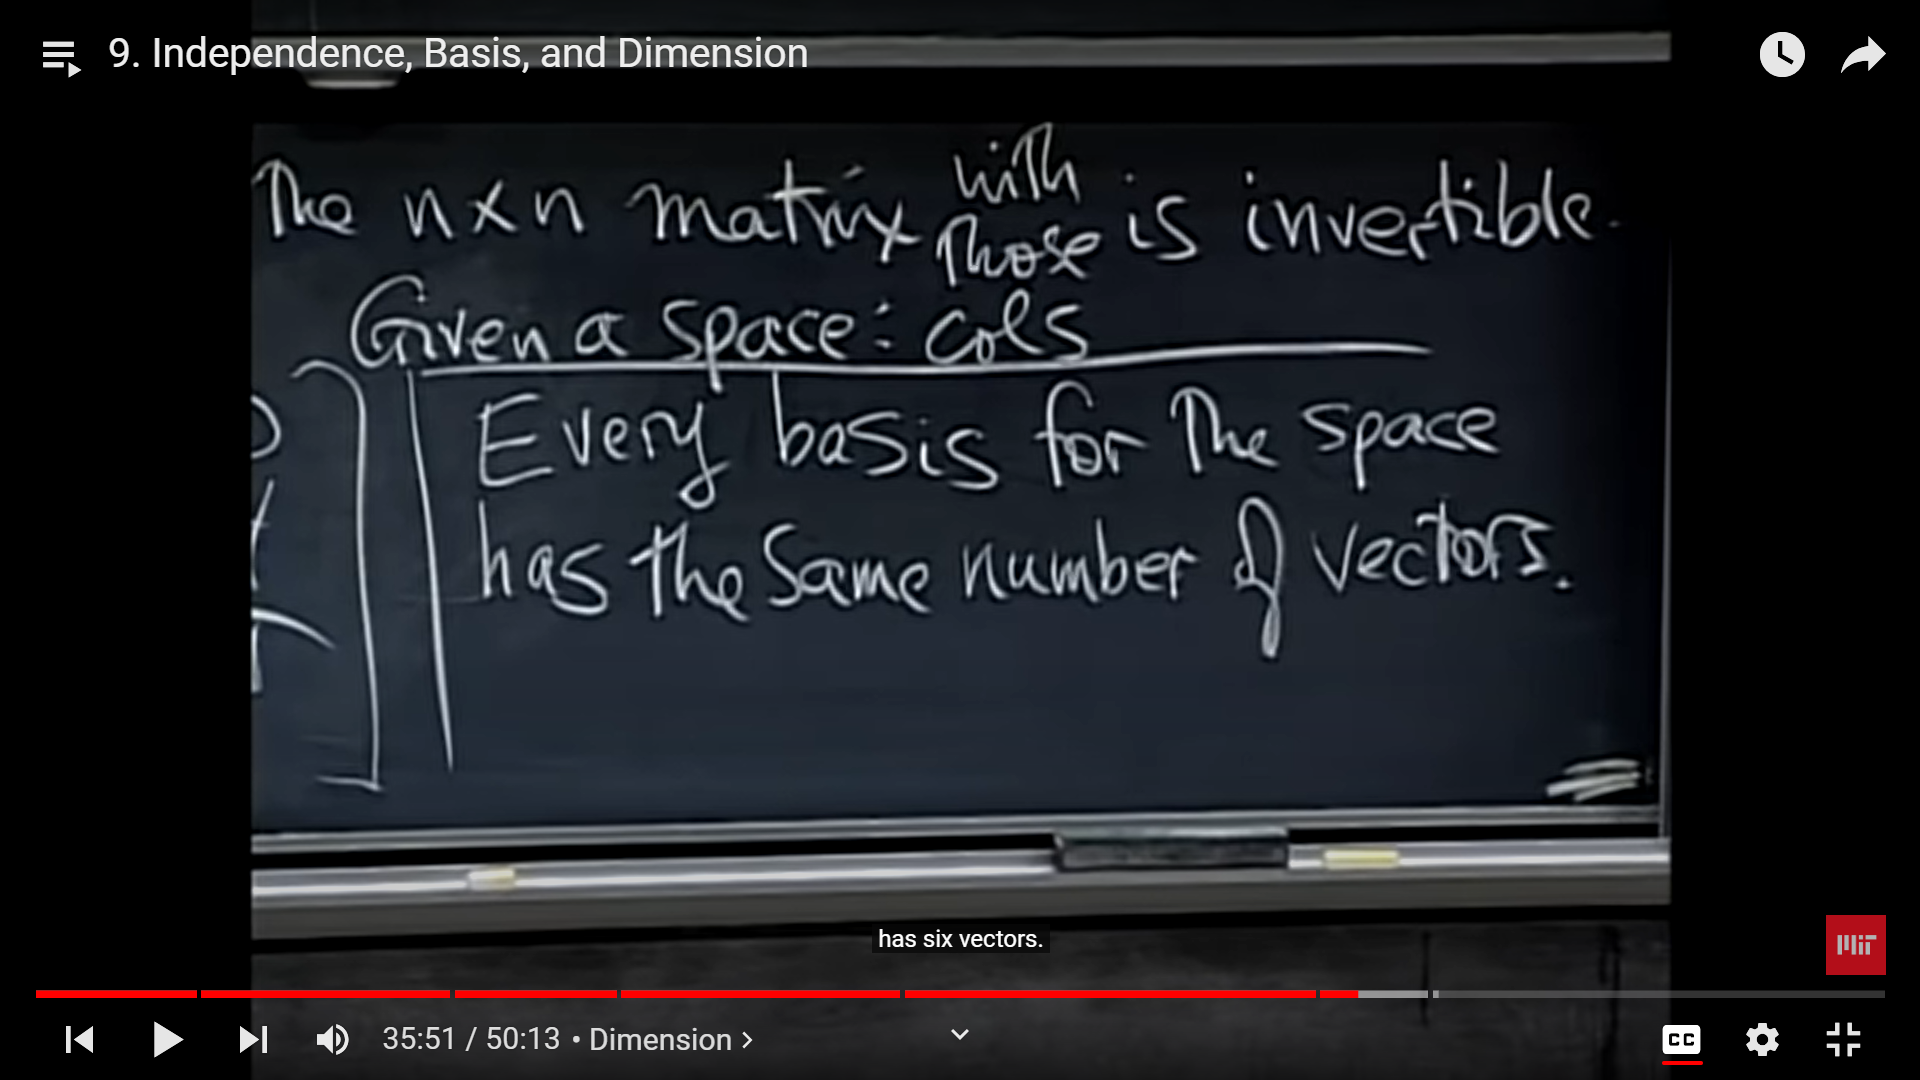 9. Independence, Basis, and Dimension
The n x n matrix with those is invertible.
Given a space: cols
Every basis for the space
has the same number of vectors.
has six vectors.
MIT
35:51 / 50:13 • Dimension >
CC